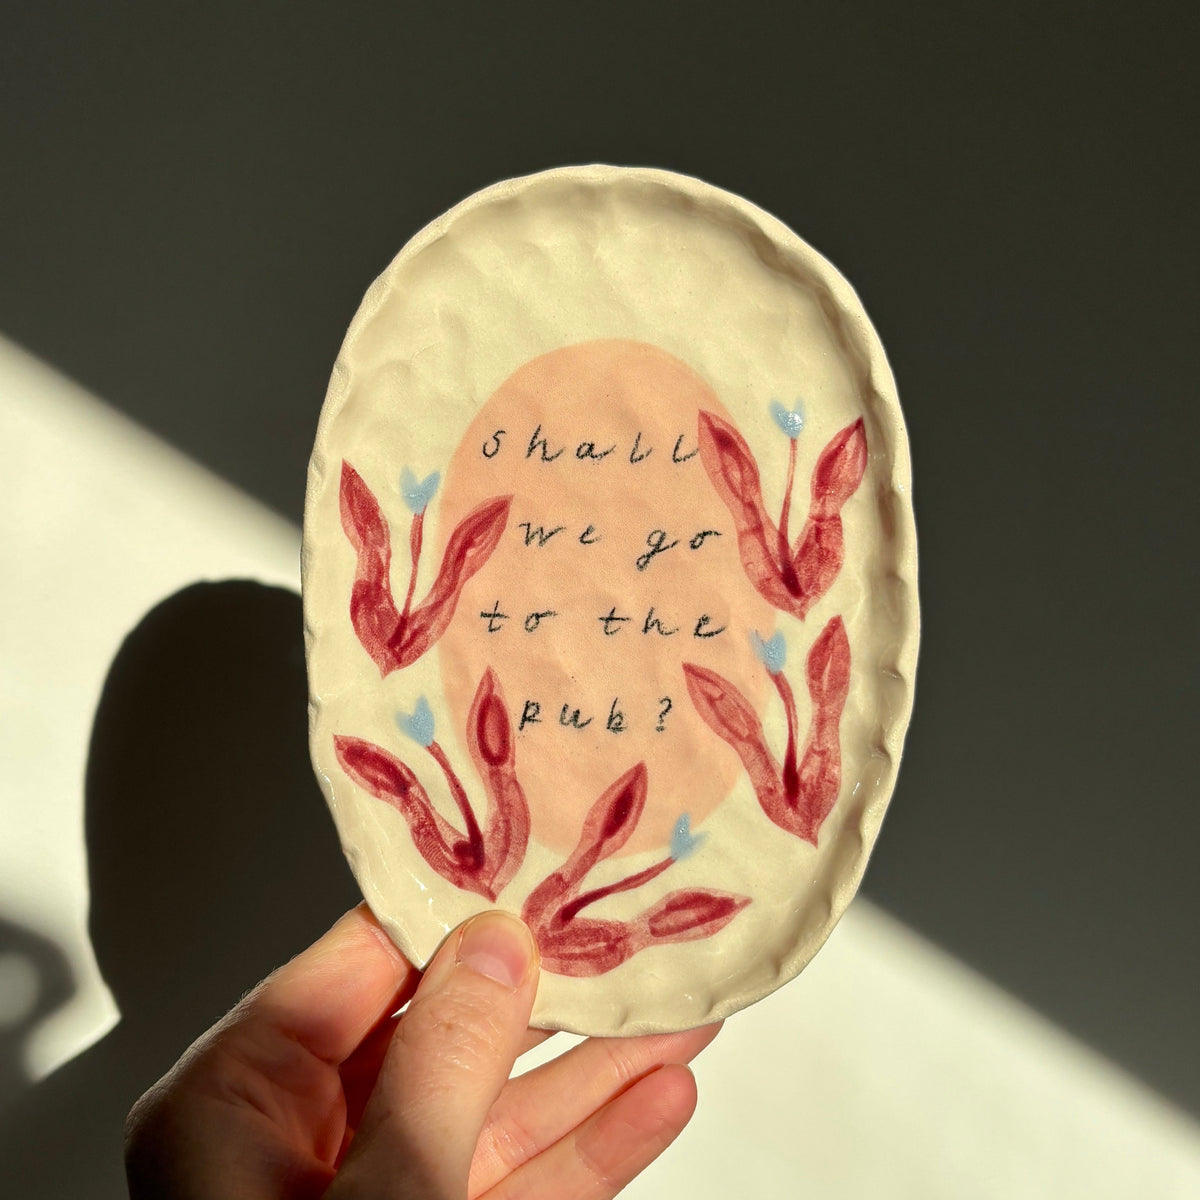 shall
we go
to the
pub?